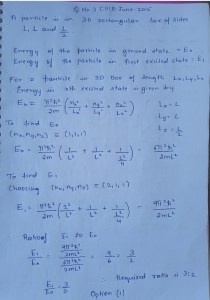 Q No 3 CSIR June 2015
A particle is in 3D rectangular box of sides
L, L and L/2
Energy of the particle in ground state = E₀
Energy of the particle in first excited state = E₁
For a particle in 3D Box of length Lx, Ly, Lz
Energy in nth excited state is given by
Eₙ = π²ħ²/2m (nx²/Lx² + ny²/Ly² + nz²/Lz²)
Lx = L
Ly = L
Lz = L/2
To find E₀
(nx, ny, nz) ≡ (1,1,1)
E₀ = π²ħ²/2m (1/L² + 1/L² + 1/(L²/4)) = 6π²ħ²/2mL²
To find E₁
Choosing (nx, ny, nz) ≡ (2,1,1)
E₁ = π²ħ²/2m (2²/L² + 1/L² + 1/(L²/4)) = 9π²ħ²/2mL²
Ratio of E₁ to E₀
E₁/E₀ = (9π²ħ²/2mL²)/(6π²ħ²/2mL²) = 9/6 = 3/2
Required ratio = 3:2
E₁/E₀ = 3/2
Option (1)